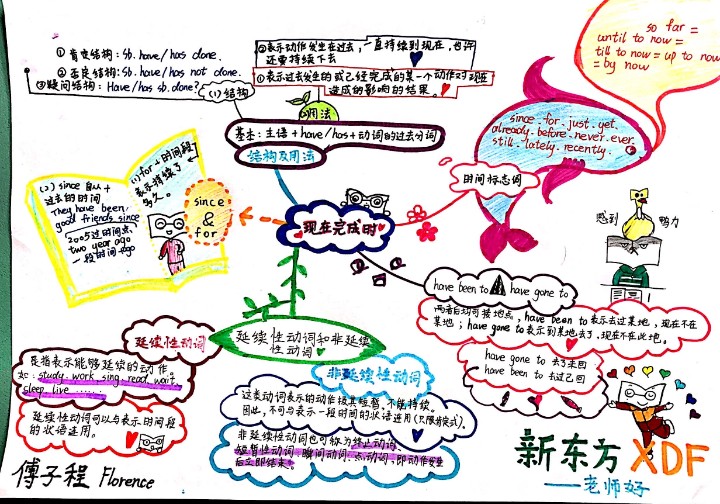 ①肯定结构:sb. have/has done.
②否定结构:sb. have/has not done.
③疑问结构:Have/has sb. done?
(1)结构
②表示动作发生在过去,一直持续到现在,也许
还要持续下去
①表示过去发生的或已经完成的某一个动作对现在
造成的影响的结果。
(2)用法
基本:主语+have/has+动词的过去分词
结构及用法
so far =
until to now =
till to now = up to now
= by now
since . for . just . yet.
already . before . never . ever.
still . lately . recently.
时间标志词
(2) since 自从+
过去的时间
They have been
good friends since
2005过时间点,
two year ago
一段时间+ago
(1) for+时间段
表示持续了
多久。
since
&
for
现在完成时
感到
鸭力
have been to
have gone to
两者后均可接地点,have been to 表示去过某地,现在不在
某地;have gone to 表示到某地去了,现在不在此地。
have gone to 去了未回
have been to 去过已回
延续性动词和非延续
性动词
延续性动词
是指表示能够延续的动作
如:study . work . sing . read . wait.
sleep . live ......
延续性动词可以与表示时间段
的状语连用。
非延续性动词
这类动词表示的动作极其短暂,不能持续。
因此,不可与表示一段时间的状语连用(只限肯定式).
非延续性动词也可称为终止动词.
短暂性动词.瞬间动词.点动词,即动作发生
后立即结束。
傅子程 Florence
新东方 XDF
——老师好